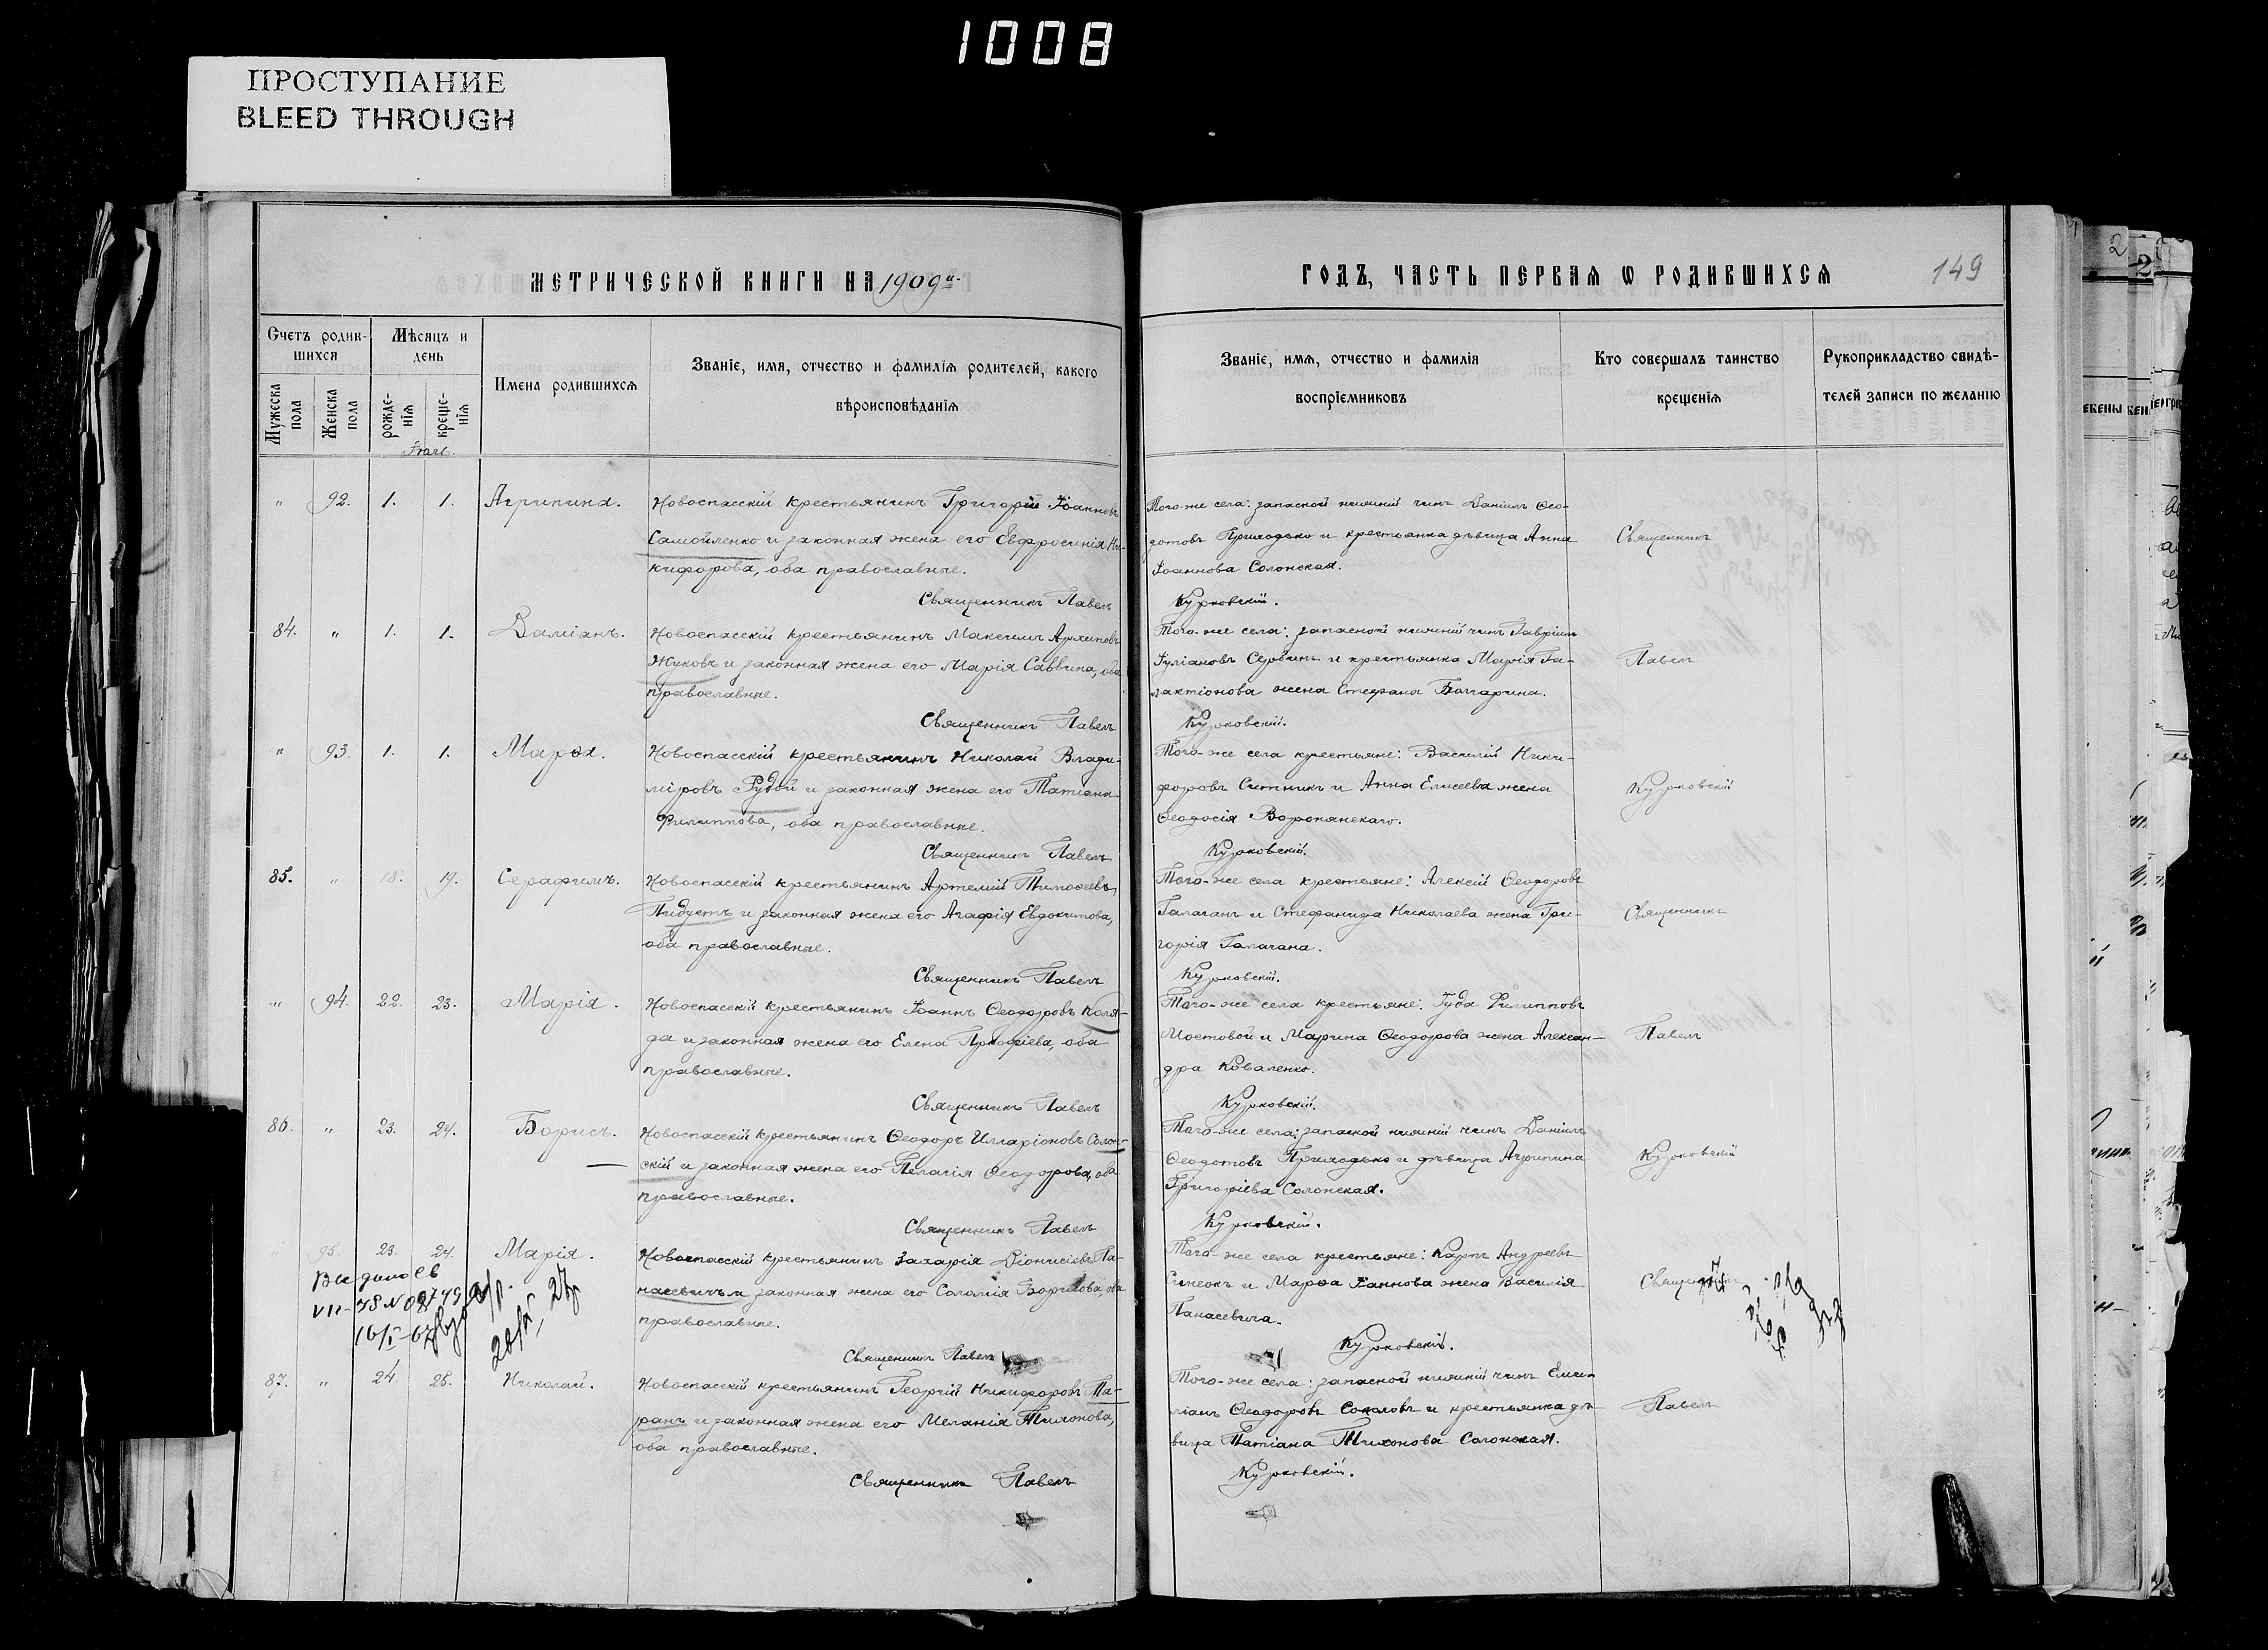 1008
ПРОСТУПАНИЕ
BLEED THROUGH
МЕТРИЧЕСКОЙ КНИГИ НА 1909й
ГОДЪ, ЧАСТЬ ПЕРВАЯ Ѡ РОДИВШИХСЯ
149
Счетъ родив-
шихся
Мужеска
пола
Женска
пола
Мѣсяцъ и
день
рожде-
нія
креще-
нія
Имена родившихся
Званіе, имя, отчество и фамилія родителей, какого
вѣроисповѣданія
Званіе, имя, отчество и фамилія
воспріемниковъ
Кто совершалъ таинство
крещенія
Рукоприкладство свидѣ-
телей записи по желанію
" 92. 1. 1. Агрипина.
Новоспасскій крестьянинъ Григорій Іоанновъ
Самойленко и законная жена его Евфросинія Ни-
кифорова, оба православные.
Священникъ Павелъ
Того-же села: запасной нижній чинъ Даніилъ Ѳео-
дотовъ Приходько и крестьянка дѣвица Анна
Іоаннова Солонская.
Курковскій.
Священникъ
84. " 1. 1. Даміанъ.
Новоспасскій крестьянинъ Максимъ Архиповъ
Жуковъ и законная жена его Марія Саввина, оба
православные.
Священникъ Павелъ
Того-же села: запасной нижній чинъ Гавріилъ
Іуліановъ Сербинъ и крестьянка Марія Га-
лактіонова жена Стефана Бочарина.
Курковскій.
Павелъ
" 93. 1. 1. Марѳа.
Новоспасскій крестьянинъ Николай Влади-
міровъ Рудой и законная жена его Татіана
Филиппова, оба православные.
Священникъ Павелъ
Того-же села крестьяне: Василій Ники-
форовъ Ситникъ и Анна Елисеева жена
Ѳеодосія Воронянскаго.
Курковскій.
Курковскій
85. " 18. 19. Серафимъ.
Новоспасскій крестьянинъ Артемій Тимоѳеевъ
Пидустъ и законная жена его Агафія Евдокимова,
оба православные.
Священникъ Павелъ
Того-же села крестьяне: Алексій Ѳеодоровъ
Галаганъ и Стефанида Николаева жена Гри-
горія Галагана.
Курковскій.
Священникъ
" 94. 22. 23. Марія.
Новоспасскій крестьянинъ Іоаннъ Ѳеодоровъ Коля-
да и законная жена его Елена Прокофіева, оба
православные.
Священникъ Павелъ
Того-же села крестьяне: Іуда Филипповъ
Мостовой и Марина Ѳеодорова жена Алексан-
дра Коваленко.
Курковскій.
Павелъ
86. " 23. 24. Борисъ.
Новоспасскій крестьянинъ Ѳеодоръ Илларіоновъ Солон-
скій и законная жена его Пелагія Ѳеодорова, оба
православные.
Священникъ Павелъ
Того-же села: запасной нижній чинъ Даніилъ
Ѳеодотовъ Приходько и дѣвица Агрипина
Григоріева Солонская.
Курковскій.
Курковскій
" 95. 23. 24. Марія.
Новоспасскій крестьянинъ Захарія Діонисіевъ Па-
насевичъ и законная жена его Соломія Борисова, оба
православные.
Священникъ Павелъ
Того-же села крестьяне: Карпъ Андреевъ
Синеокъ и Марѳа Іоаннова жена Василія
Панасевича.
Курковскій.
Священникъ
87. " 24. 25. Николай.
Новоспасскій крестьянинъ Георгій Никифоровъ Та-
ранъ и законная жена его Меланія Тихонова,
оба православные.
Священникъ Павелъ
Того-же села: запасной нижній чинъ Емил-
ліанъ Ѳеодоровъ Соколовъ и крестьянка дѣ-
вица Татіана Тихонова Солонская.
Курковскій.
Павелъ